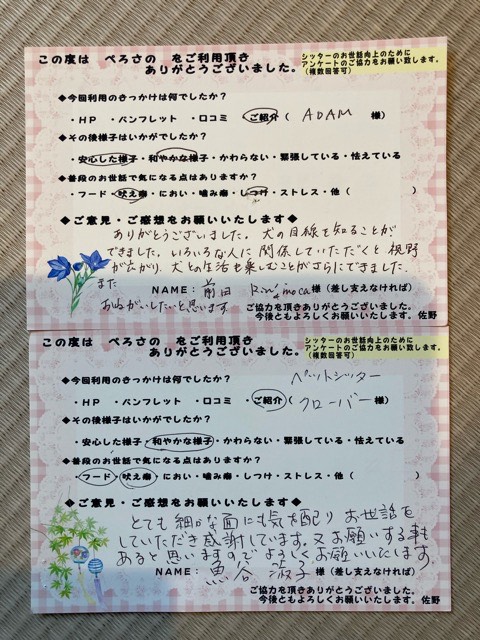 この度は ぺろさの をご利用頂き
ありがとうございました。
シッターのお世話向上のために
アンケートのご協力をお願い致します。
(複数回答可)
◆今回利用のきっかけは何でしたか?
・HP ・パンフレット ・口コミ ・ご紹介( ADAM 様)
◆その後様子はいかがでしたか?
・安心した様子・和やかな様子・かわらない・緊張している・怯えている
◆普段のお世話で気になる点はありますか?
・フード・吠え癖・におい・噛み癖・しつけ・ストレス・他( )
◆ご意見・ご感想をお願いいたします◆
ありがとうございました。犬の目線を知ることが
できました。いろいろな人に関係していただくと視野
が広がり、犬との生活も楽しむことがさらにできました。
また
おねがいしたいと思います
NAME: 前田 Rin&moca様(差し支えなければ)
ご協力頂きありがとうございました。
今後ともよろしくお願いいたします。佐野
この度は ぺろさの をご利用頂き
ありがとうございました。
シッターのお世話向上のために
アンケートのご協力をお願い致します。
(複数回答可)
◆今回利用のきっかけは何でしたか?
ペットシッター
・HP ・パンフレット ・口コミ ・ご紹介( クローバー 様)
◆その後様子はいかがでしたか?
・安心した様子・和やかな様子・かわらない・緊張している・怯えている
◆普段のお世話で気になる点はありますか?
・フード・吠え癖・におい・噛み癖・しつけ・ストレス・他( )
◆ご意見・ご感想をお願いいたします◆
とても細かな面にも気を配り お世話を
していただき感謝しています。又お願いする事も
あると思いますのでよろしくお願いいたします。
NAME: 魚谷 淑子 様(差し支えなければ)
ご協力頂きありがとうございました。
今後ともよろしくお願いいたします。佐野